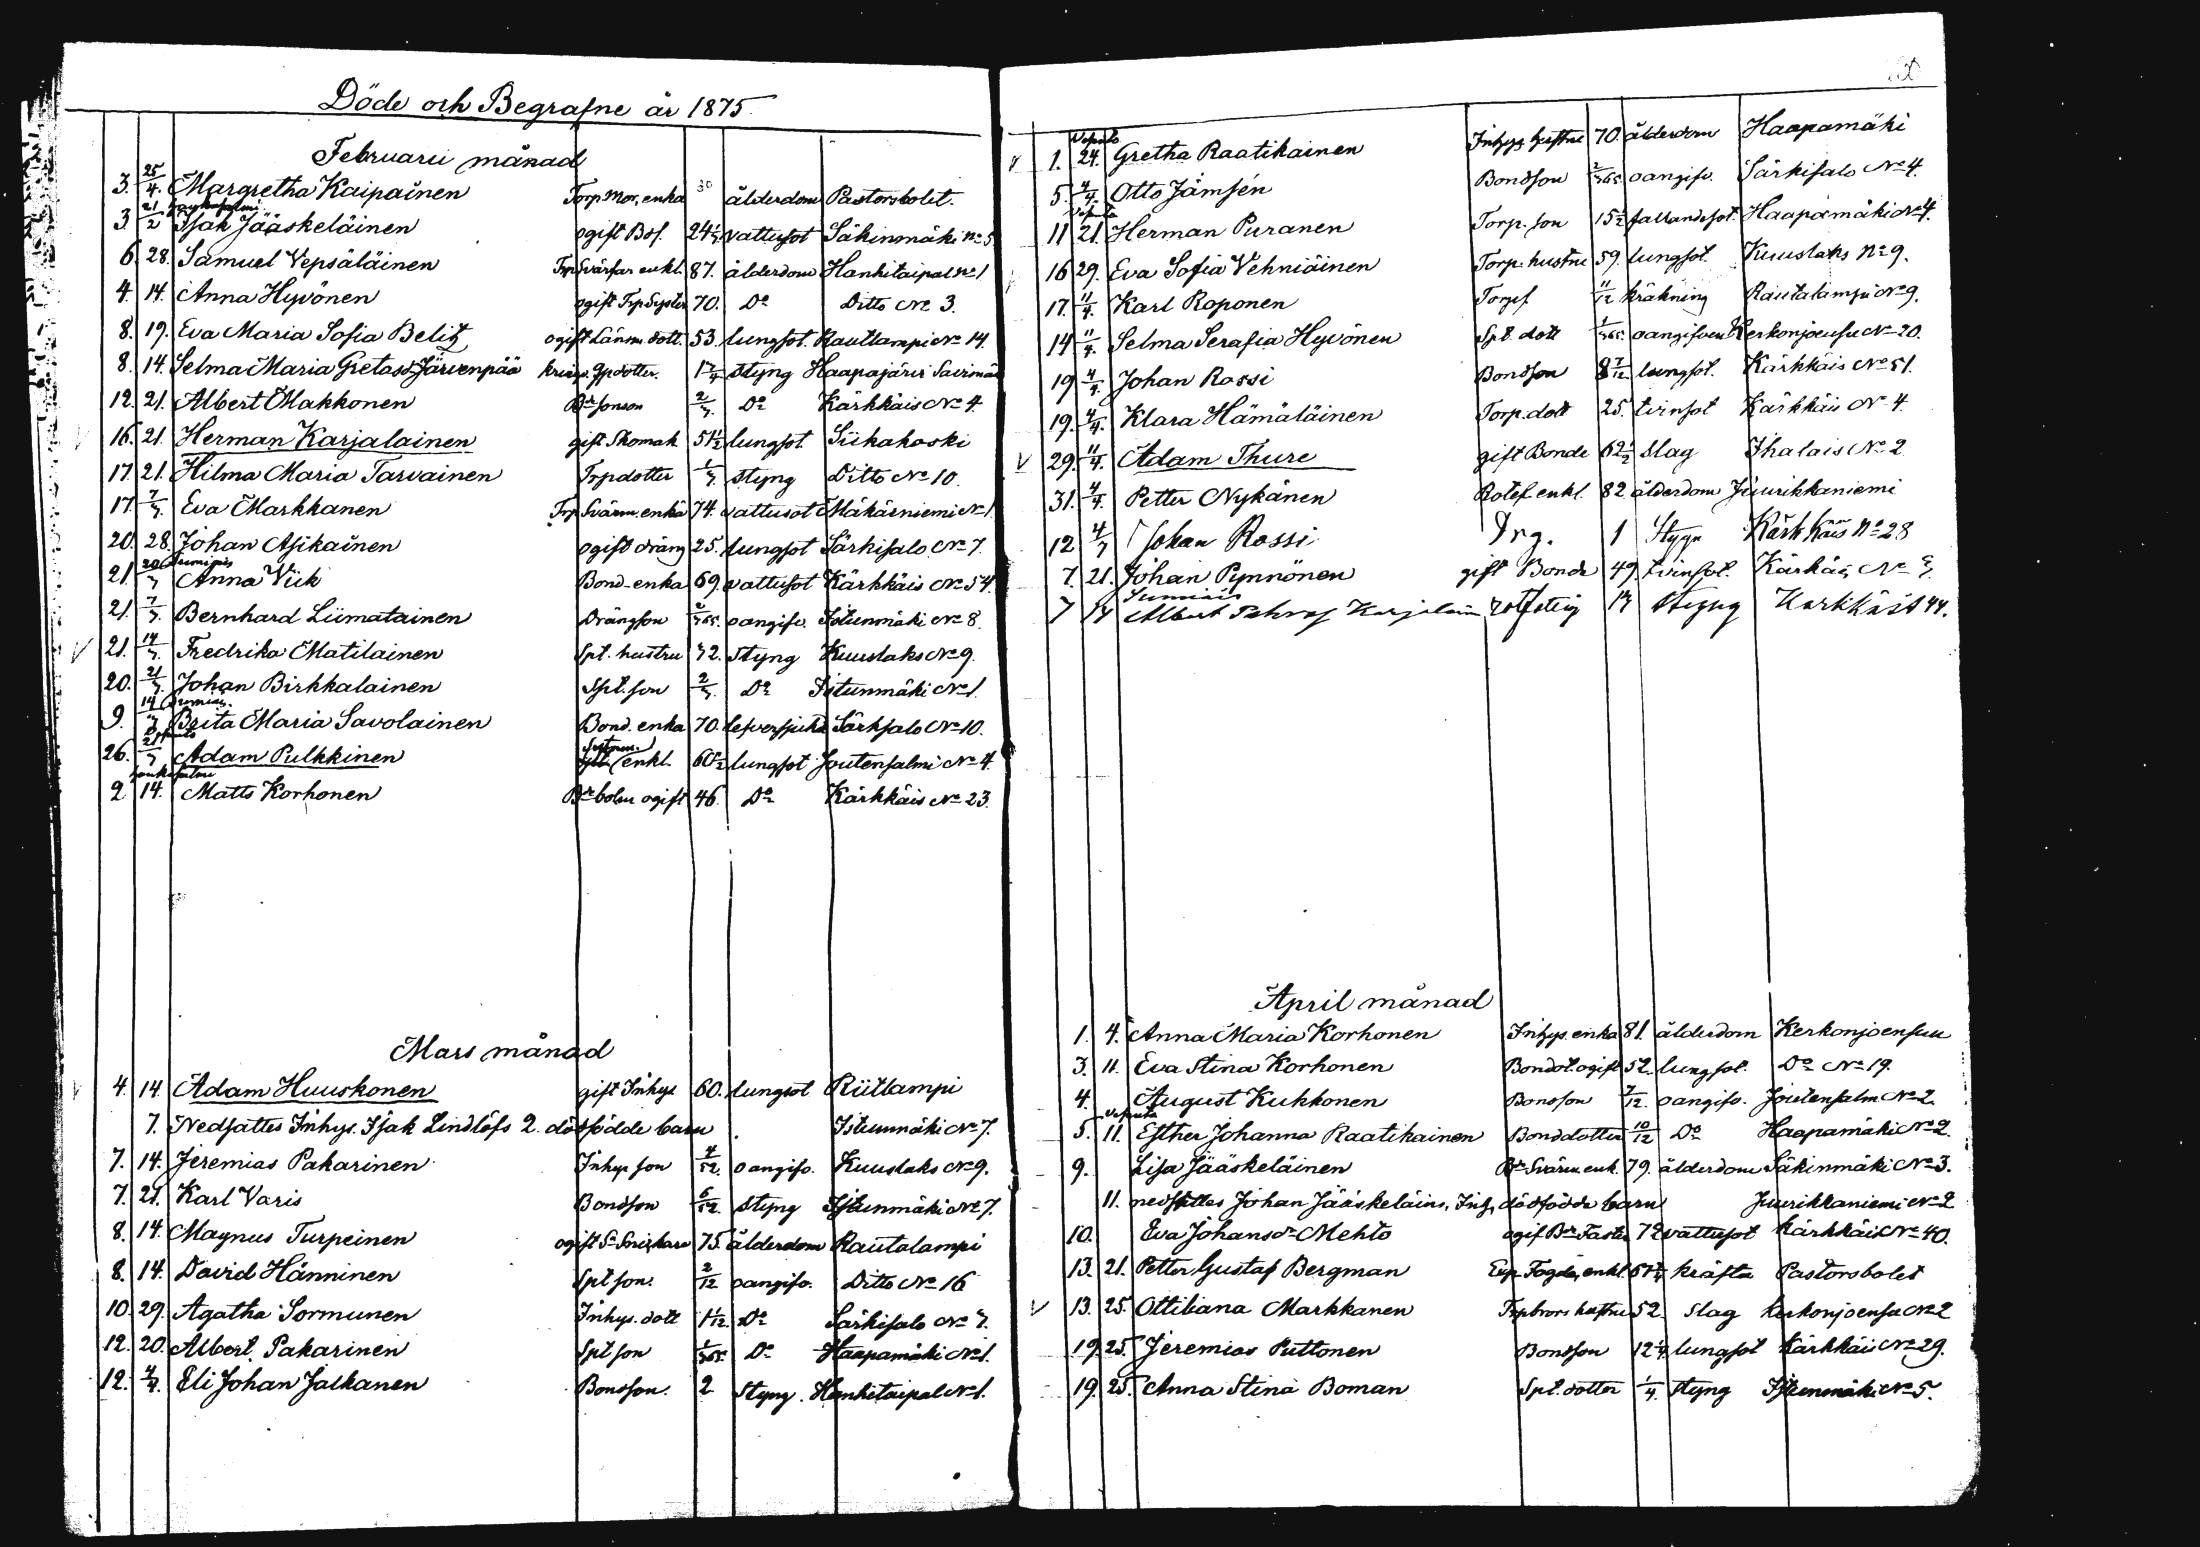 Döde och Begrafne år 1875.
Februarii månad
3. 25/4. Margretha Kaipainen Torp. Mor. enka 30 ålderdom Pastorsbolet.
3 21/2 Isak Jääskeläinen ogift Bos. 24 1/3 vattusot Säkinmäki No 5
6. 28. Samuel Vepsäläinen Trp Svärfar enkl. 87. ålderdom Hankitaipal No 1
4. 14. Anna Hyvönen ogift Trp Syster 70. Do Ditto No 3.
8. 19. Eva Maria Sofia Belitz ogift Länsm dott. 53. lungsot. Rautlampi No 14.
8. 14. Selma Maria Gretasdr Järvenpää dotter. 1 3/4 styng Haapajärvi
12. 21. Albert Makkonen Bdr sonson 2/3. Do Kärkkäis No 4.
16. 21. Herman Karjalainen gift Skomak 51 1/2 lungsot Siikakoski
17. 21. Hilma Maria Tarvainen Trp dotter 1/3 styng Ditto No 10.
17. 7/3. Eva Markkanen Trp Svärm. enka 74. vattusot Mäkärniemi No 1
20. 28. Johan Asikainen ogift dräng 25. lungsot Särkisalo No 7.
21 Anna Viik Bond. enka 69. vattusot Kärkkäis No 54
21. 7/3. Bernhard Liimatainen Drängson 2/365. oangifv. Istunmäki No 8.
V 21. 14/3. Fredrika Matilainen Spt. hustru 32. styng Kuuslaks No 9.
20. 21/3. Johan Birkkalainen Spt. son 2/3. Do Istunmäki No 1.
9. 14/3 Brita Maria Savolainen Bond. enka 70. lefversjuka Särksalo No 10.
26. 21/3 Adam Pulkkinen enkl. 60 1/2 lungsot Joutensalmi No 4.
2 14. Matts Korhonen Bdr bolm ogift 46. Do Kärkkäis No 23.
Mars månad
4. 14. Adam Huuskonen gift Inhys 60. lungsot Riitlampi
7. Nedsattes Inhys. Isak Lindlöfs 2. dödfödde barn Istunmäki No 7.
7. 14. Jeremias Pakarinen Inhys son 4/52. oangifv. Kuuslaks No 9.
7. 21. Karl Varis Bondson 6/52. styng Istunmäki No 7.
8. 14. Magnus Turpeinen ogift Sn Snickare 75. ålderdom Rautalampi
8. 14. David Hänninen Spt son. 2/12 oangifv. Ditto No 16
10. 29. Agatha Sormunen Inhys. dott 1 1/12. Do Särkisalo No 7.
12. 20. Albert Pakarinen Spt son 1/365. Do Haapamäki No 1.
12. 4/4. Eli Johan Jalkanen Bondson. 2 styng. Hankitaipal No 1.
V 1. 24. Gretha Raatikainen Inhys hustru 70. ålderdom Haapamäki
5. 4/4. Otto Jämsén Bondson 2/365. oangifv. Särkisalo No 4.
11 21. Herman Puranen Torp. son 15 1/2 fallandesot. Haapamäki No 4.
16 29. Eva Sofia Vehniäinen Torp. hustru 59. lungsot. Kuuslaks No 9.
17. 11/4. Karl Roponen Torps 11/12 kräkning Rautalampi No 9.
14 11/4. Selma Serafia Hyvönen Spt. dott 1/365. oangifven Kerkonjoensu No 20.
19 4/4. Johan Rossi Bondson 8 7/12 lungsot. Kärkkäis No 51.
19. 4/4. Klara Hämäläinen Torp. dott 25. tvinsot Kärkkäis No 4.
V 29. 11/4. Adam Thure gift Bonde 62 1/2 Slag Ihalais No 2
31. 4/4. Petter Nykänen Rotef. enkl. 82 ålderdom Juurikkaniemi
12 4/7 Johan Rossi Drg. 1 Stygn Kärkkäis No 28
7. 21. Johan Pynnönen gift Bonde 49. tvinsot. Kärkäis No
7 Albert 17 Styng Karkkäis 44.
April månad
1. 4. Anna Maria Korhonen Inhys. enka 81. ålderdom Kerkonjoensuu
3. 11. Eva Stina Korhonen Bondd. ogift 52. lungsot. Do No 19.
4. August Kukkonen Bondson 7/12. oangifv. Joutensalm No 2
5. 11. Esther Johanna Raatikainen Bonddotter 10/12 Do Haapamäki No 2.
9. Lisa Jääskeläinen Bdr Svärm. enk. 79. ålderdom Säkinmäki No 3.
11. nedsattes Johan Jääskeläins, Inh, dödfödde barn Juurikkaniemi No 2
10. Eva Johansdr Mehto ogif Bdr Faster 72 vattusot Kärkkäis No 40.
13. 21. Petter Gustaf Bergman enkl. kräfta Pastorsbolet
V 13. 25. Ottiliana Markkanen Trp brors hustru 52. Slag Kerkonjoensu No 2
19. 25. Jeremias Puttonen Bondson 12 1/4. lungsot Kärkkäis No 29.
19. 25. Anna Stina Boman Spt. dotter 1/4. styng Istunmäki No 5.